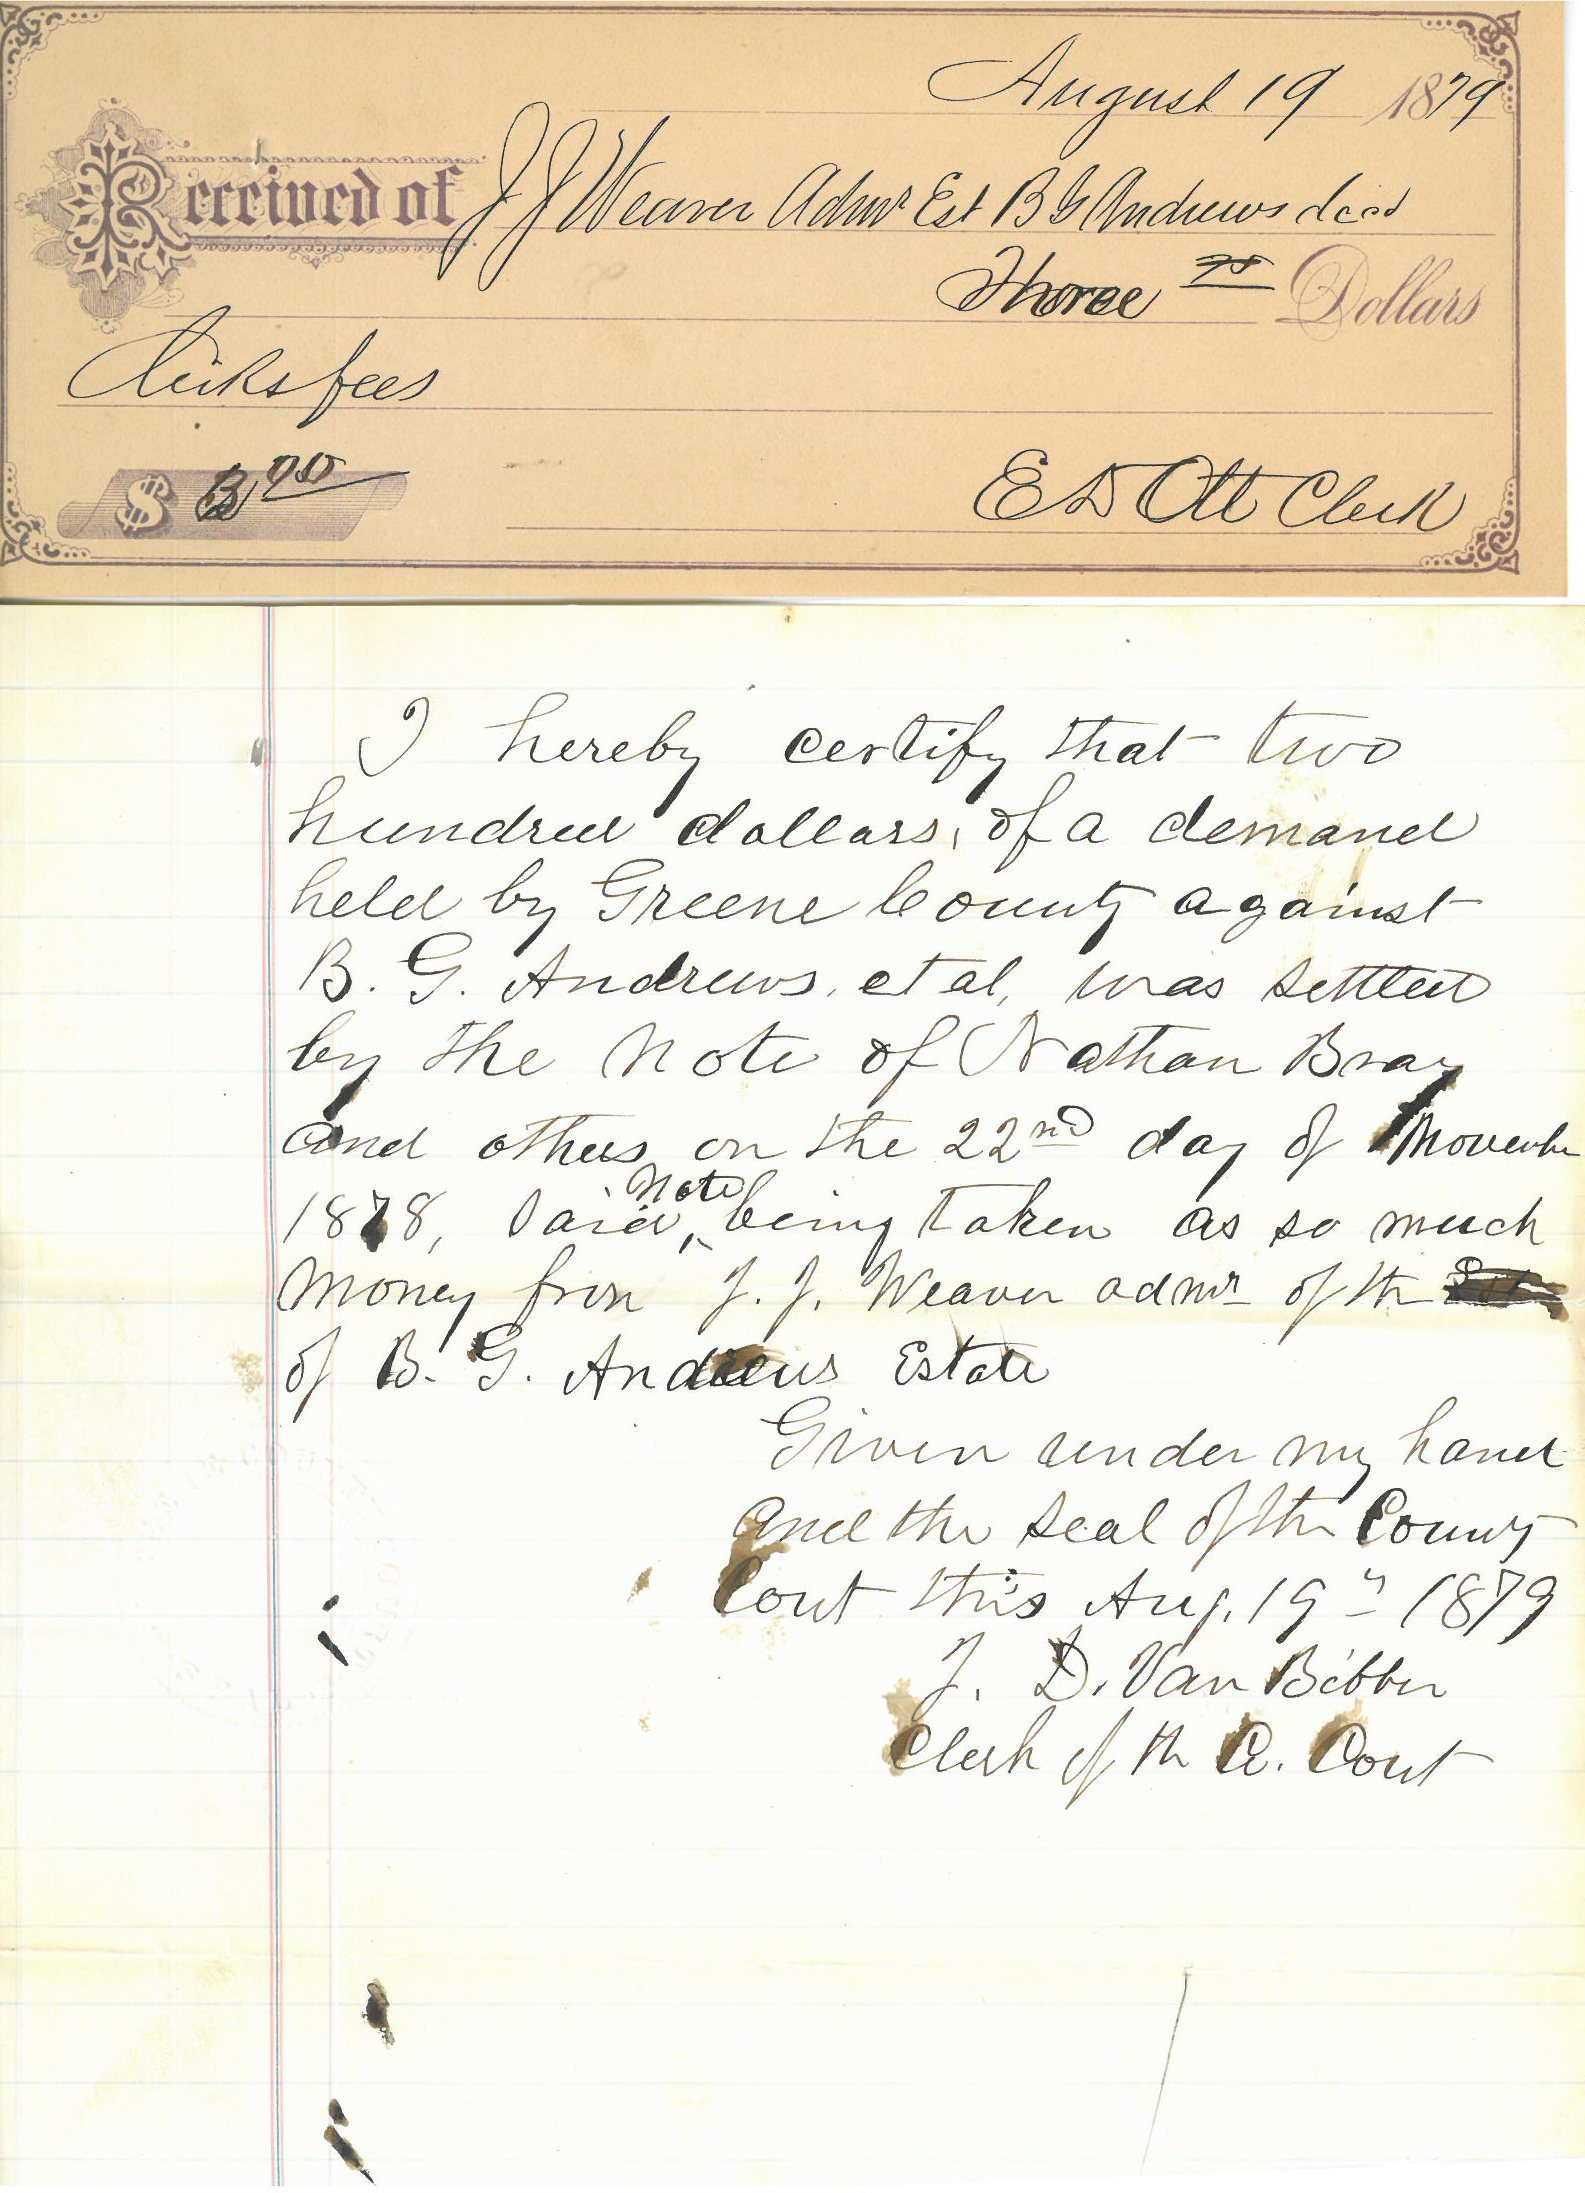 August 19 1879
Received of J J Weaver Admr Est B G Andrews decd
Three Dollars
Clerks fees
$
E D Ott Clerk
I hereby certify that two
hundred dollars, of a demand
held by Greene County against
B. G. Andrews, et al, was settled
by the Note of Nathan Bray
and others on the 22nd day of November
1878, Said Note being taken as so much
Money from J. J. Weaver admr of the Est
of B. G. Andrews Estate
Given under my hand
and the seal of the County
Court this Aug. 19" 1879
J. D. Van Bibber
Clerk of th C. Court